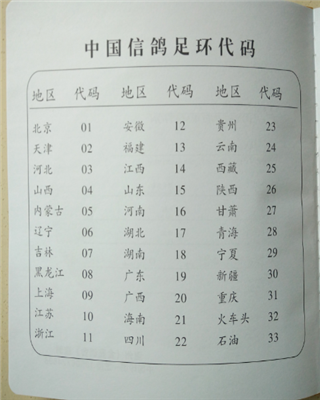 中国信鸽足环代码
地区 代码 地区 代码 地区 代码
北京 01 安徽 12 贵州 23
天津 02 福建 13 云南 24
河北 03 江西 14 西藏 25
山西 04 山东 15 陕西 26
内蒙古 05 河南 16 甘萧 27
辽宁 06 湖北 17 青海 28
吉林 07 湖南 18 宁夏 29
黑龙江 08 广东 19 新疆 30
上海 09 广西 20 重庆 31
江苏 10 海南 21 火车头 32
浙江 11 四川 22 石油 33